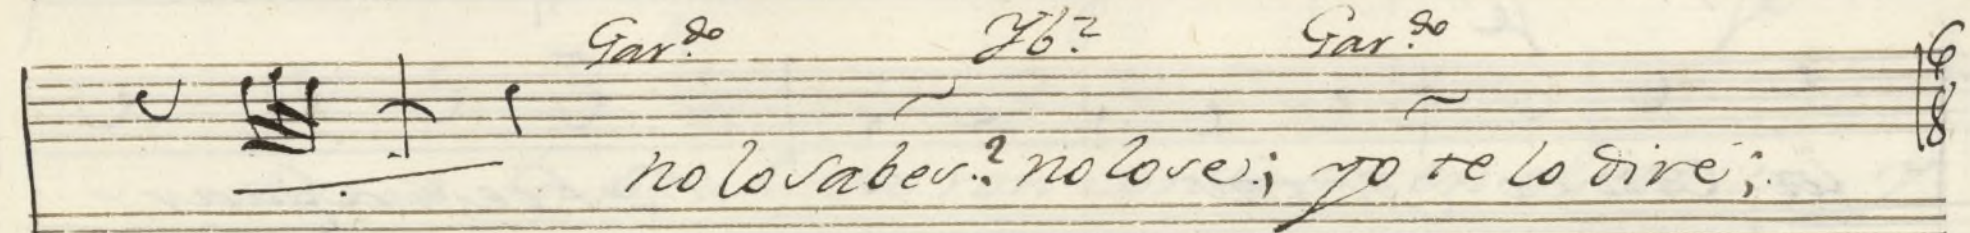 Gar.do Yb.? Gar.do
6
8
no lo saber.? no lo se.; yo te lo dire;.